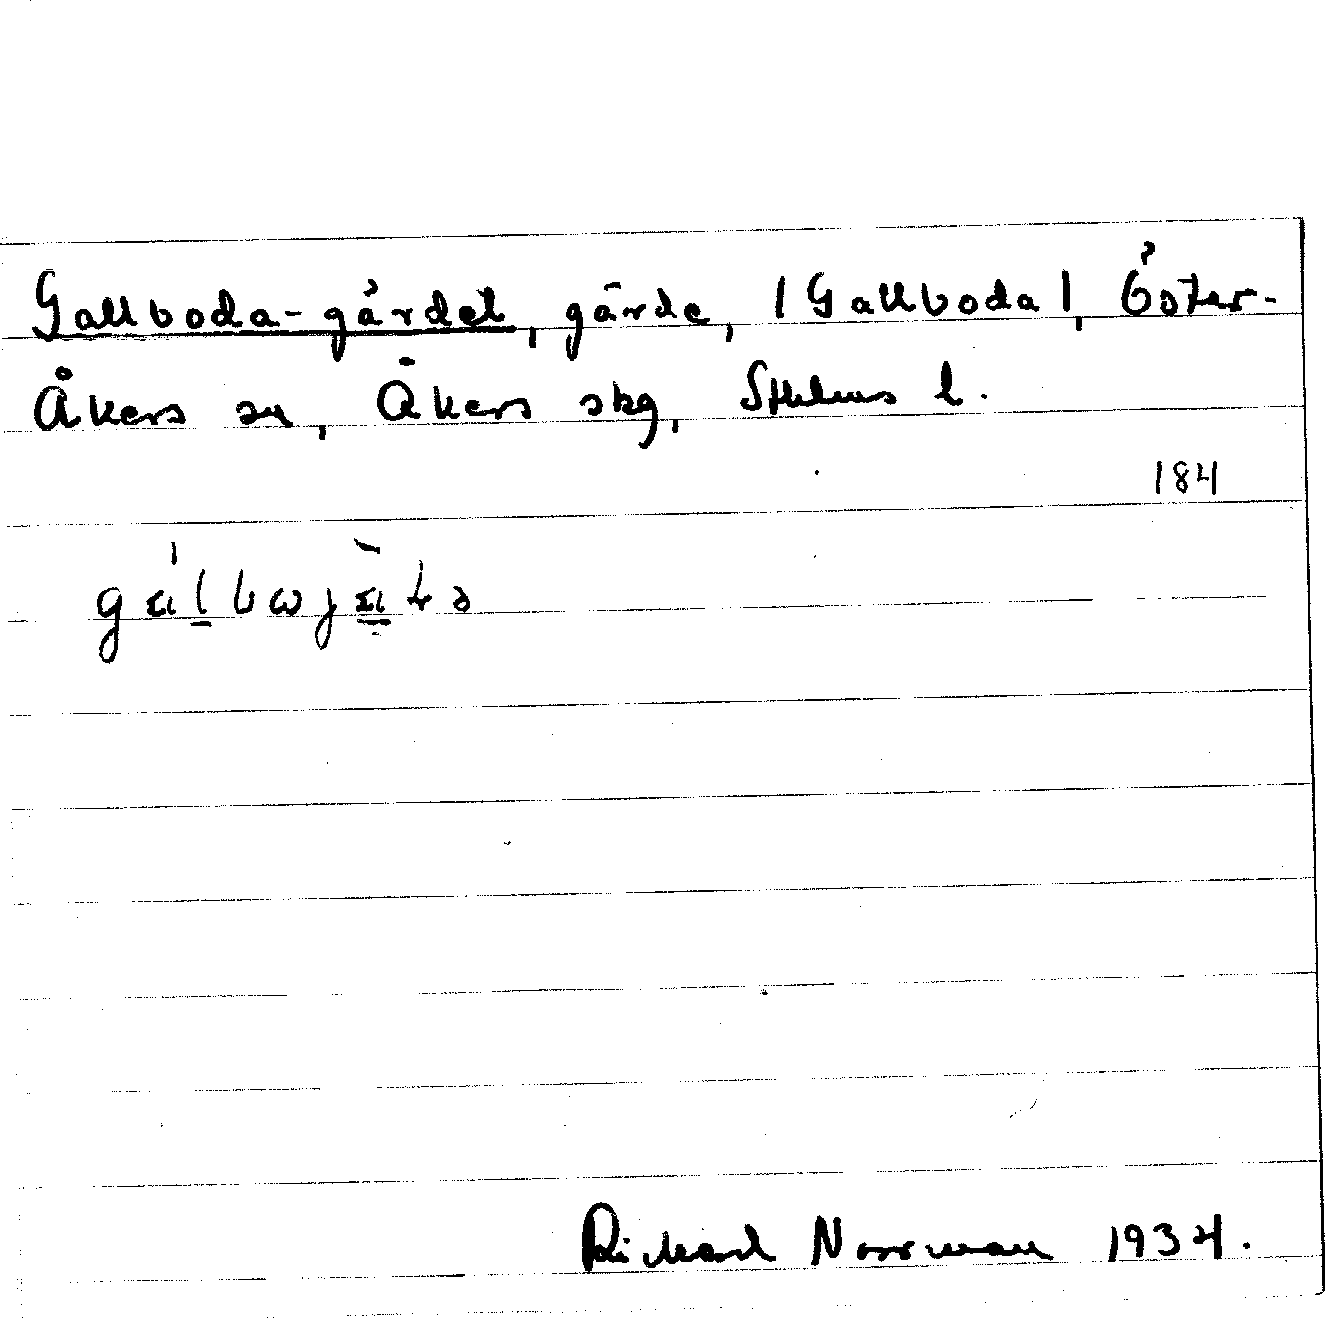 Gallboda-gärdet, gärde, (Gallboda), Öster-
Åkers sn, Åkers skg, Sthlms l.
184
Rickard Norrman 1934.